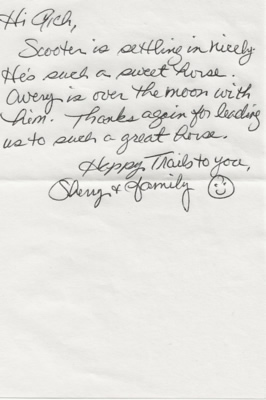 Hi Rich,
Scooter is settling in nicely.
He's such a sweet horse.
Avery is over the moon with
him. Thanks again for leading
us to such a great horse.
Happy Trails to you,
Shery & family